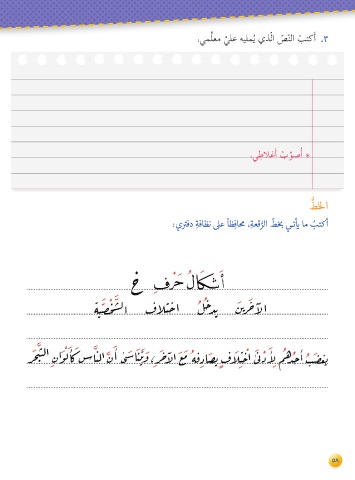 ٣. أكتبُ النّصّ الّذي يُمليه عليّ معلّمي.
* أُصوّبُ أغلاطي.
الخطُّ
أكتبُ ما يأتي بخطّ الرّقعة، محافِظاً على نظافةِ دفتري:
أَشْكَالُ حَرْفِ خ
الآخَرينَ يدخُلُ اختلاف الشَّخْصيَّة
يغضَبُ أحدُهُم لِأَدْنَى اخْتِلَافٍ يصَادِفُهُ مَعَ الآخَرِ، وَيَتَنَاسَى أَنَّ النَّاسَ كَأَلْوَانِ الشَّجَرِ
٥٨